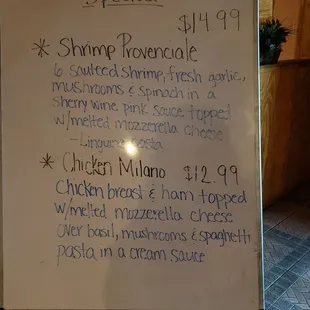 Specials
$14.99
* Shrimp Provenciale
6 sauteed shrimp, fresh garlic,
mushrooms & spinach in a
sherry wine pink sauce topped
w/melted mozzerella cheese
- Linguine pasta
* Chicken Milano $12.99
Chicken breast & ham topped
w/melted mozzerella cheese
over basil, mushrooms & spaghetti
pasta in a cream sauce